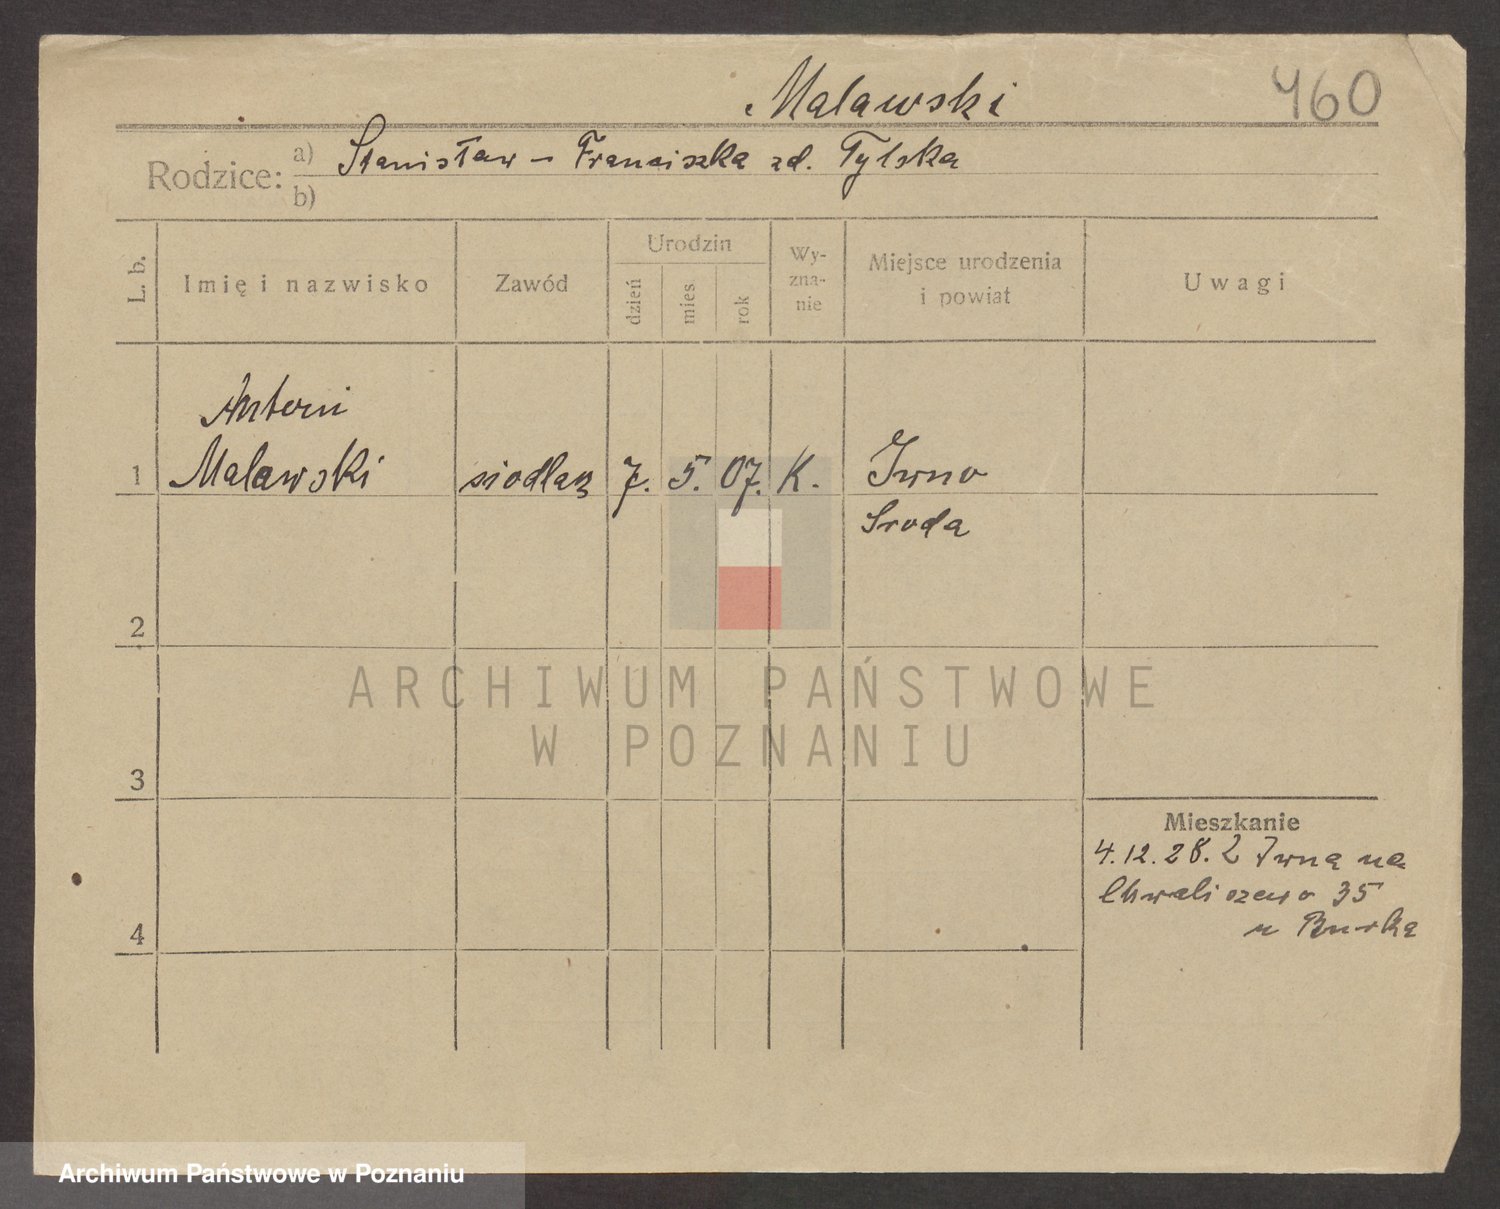 Malawski
460
Rodzice: a) Stanisław – Franciszka zd. Tylska
b)
L. b.
Imię i nazwisko
Zawód
Urodzin
dzień
mies
rok
Wy-
zna-
nie
Miejsce urodzenia
i powiat
Uwagi
Antoni
1 Malawski siodlarz 7. 5. 07. K. Iwno
Sroda
2
ARCHIWUM PAŃSTWOWE
W POZNANIU
3
Mieszkanie
4.12.28. Z Iwna na
Chwaliszewo 35
u Burka
4
Archiwum Państwowe w Poznaniu